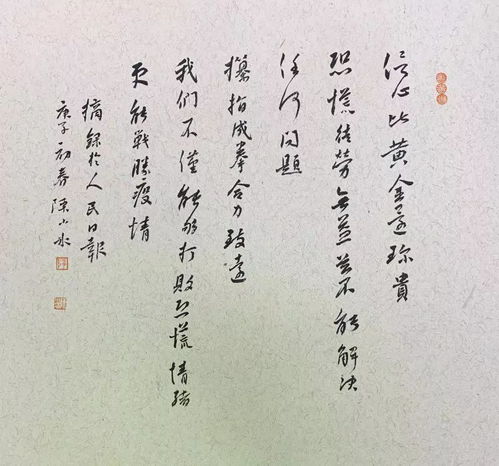 信心比黄金更珍貴
恐慌徒勞無益並不能解决
任何問題
攥指成拳合力致遠
我們不僅能够打敗恐慌情绪
更能戰勝疫情
摘録於人民日報
庚子初春陳小水